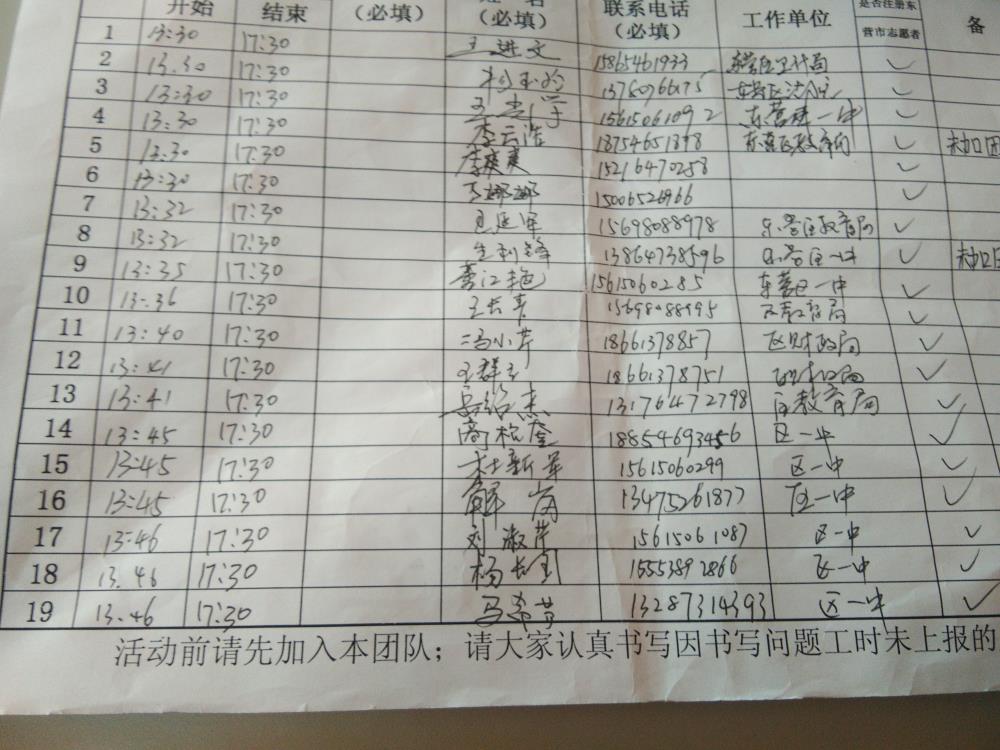 开始 结束 (必填) 姓 名 (必填) 联系电话 (必填) 工作单位 是否注册东营市志愿者 备
1 13:30 17:30 王进文 15865461933 东营区卫计局 ✓
2 13.30 17:30 ✓
3 13:30 17:30 15615061092 东营区一中 ✓
4 13:30 17:30 李云浩 18754651898 ✓
5 13.30 17:30 15216470258 ✓
6 13:30 17:30 李娜娜 15006526966 ✓
7 13:32 17:30 王延军 15698088978 东营区教育局 ✓
8 13:32 17:30 13864738596 东营区一中 ✓
9 13:35 17:30 15615060285 东营区一中 ✓
10 13:36 17:30 王长青 15698088995 区教育局 ✓
11 13:40 17:30 冯小芹 18661378857 区财政局 ✓
12 13:41 17:30 18661378751 ✓
13 13:41 17:30 13176472798 区教育局 ✓
14 13:45 17:30 18854693456 区一中 ✓
15 13:45 17:30 杜新军 15615060299 区一中 ✓
16 13:45 17:30 解岗 13475261877 区一中 ✓
17 13:46 17:30 刘淑芹 15615061087 区一中 ✓
18 13.46 17:30 15553892866 区一中 ✓
19 13.46 17:30 13287314393 区一中 ✓
活动前请先加入本团队；请大家认真书写因书写问题工时未上报的